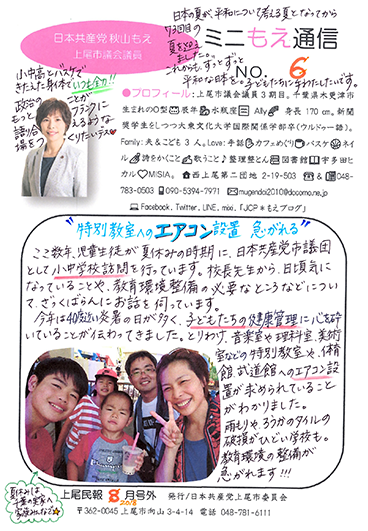 日本共産党 秋山もえ
上尾市議会議員
日本の夏が、平和について考える夏となってから
73回目の
夏を迎え
ました。
これからも、ずっとずっと
平和な日本を子どもたちに手わたしたいです。
ミニもえ通信
No. 6
小中高とバスケで
きたえた身体でいつも全力!!
政治の
ことが
もっと
フランクに
語り合
えるような
場をつくりたいデス♥
●プロフィール:上尾市議会議員3期目。千葉県木更津市
生まれのO型 辰年 水瓶座 Ally 身長170cm。新聞
奨学生をしつつ大東文化大学国際関係学部卒(ウルドゥー語)。
Family:夫&こども3人。Love:手話 カフェめぐり バスケ ネイ
ル 詩をかくこと 歌うこと♪整理整とん 図書館 宇多田ヒ
カル MISIA。 西上尾第二団地2-19-503 & 048-
783-0503 090-5394-7971 mugendai2010@docomo.ne.jp
Facebook、Twitter、LINE、mixi、「JCP*もえブログ」
"特別教室へのエアコン設置 急がれる"
ここ数年、児童生徒が夏休みの時期に、日本共産党市議団
として小中学校訪問を行っています。校長先生から、日頃気に
なっていることや、教育環境整備の必要なところなどについ
て、ざっくばらんにお話を伺っています。
今年は40度近い炎暑の日が多く、子どもたちの健康管理に心を砕
いていることが伝わってきました。とりわけ、音楽室や理科室、美術
室などの特別教室や、体育
館、武道館へのエアコン設
置が求められていること
がわかりました。
雨もりや、ろうかのタイルの
破損がひどい学校も。
教育環境の整備が
急がれます!!!
夏休みは
千葉の実家へ
家族みんなで
上尾民報 8月号外 発行/日本共産党上尾市委員会
2018
〒362-0045 上尾市向山3-4-14 電話 048-781-6111